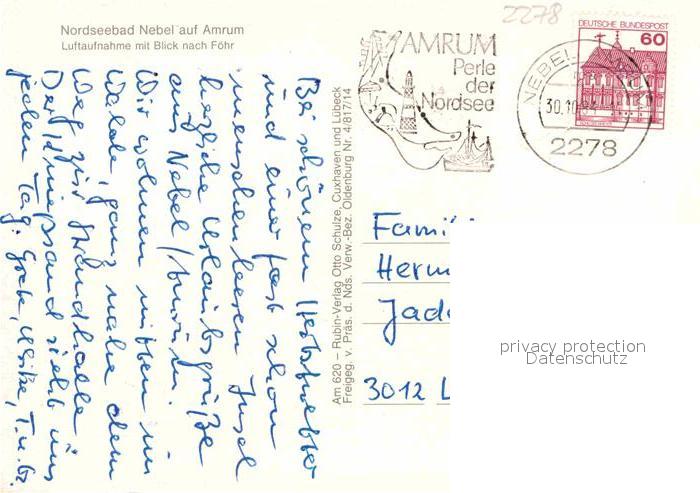 Nordseebad Nebel auf Amrum
Luftaufnahme mit Blick nach Föhr
2278
AMRUM
Perle
der
Nordsee
NEBEL
30.10.
2278
DEUTSCHE BUNDESPOST
60
Bei schönem Herbstwetter
und einer fast schon
menschenleeren Insel
herzliche Urlaubsgrüße
aus Nebel/Amrum.
Wir wohnen mitten im
Walde, ganz nahe dem
Weg zur Strandhalle.
Der Kniepsand sieht uns
jeden Tag. Grete, Ulrike, T. u. G.
Am 620 – Rubin-Verlag Otto Schulze, Cuxhaven und Lübeck
Freigeg. v. Präs. d. Nds. Verw.-Bez. Oldenburg Nr. 4/817/14
Fami
Herm
Jad
3012 L
privacy protection
Datenschutz